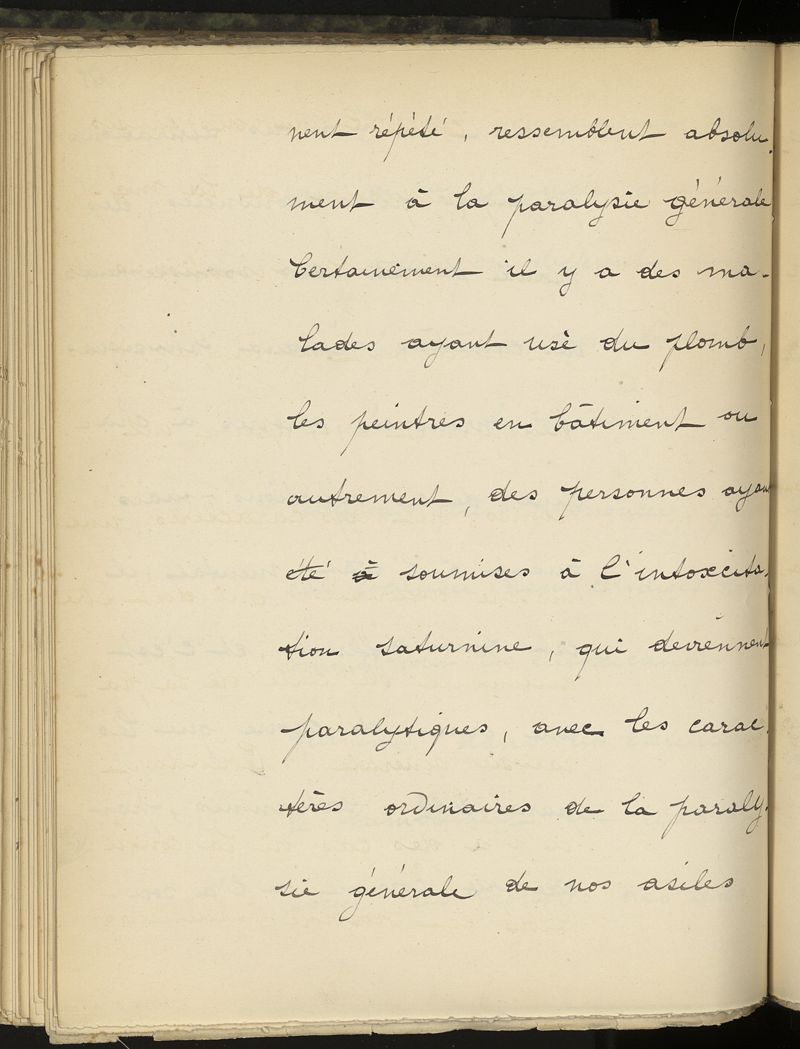 nent répété, ressemblent absolu-
ment à la paralysie générale
Certainement il y a des ma-
lades ayant usé du plomb,
les peintres en bâtiment ou
autrement, des personnes ayant
été à soumises à l'intoxcita-
tion saturnine, qui deviennent
paralytiques, avec les carac-
tères ordinaires de la paraly-
sie générale de nos asiles